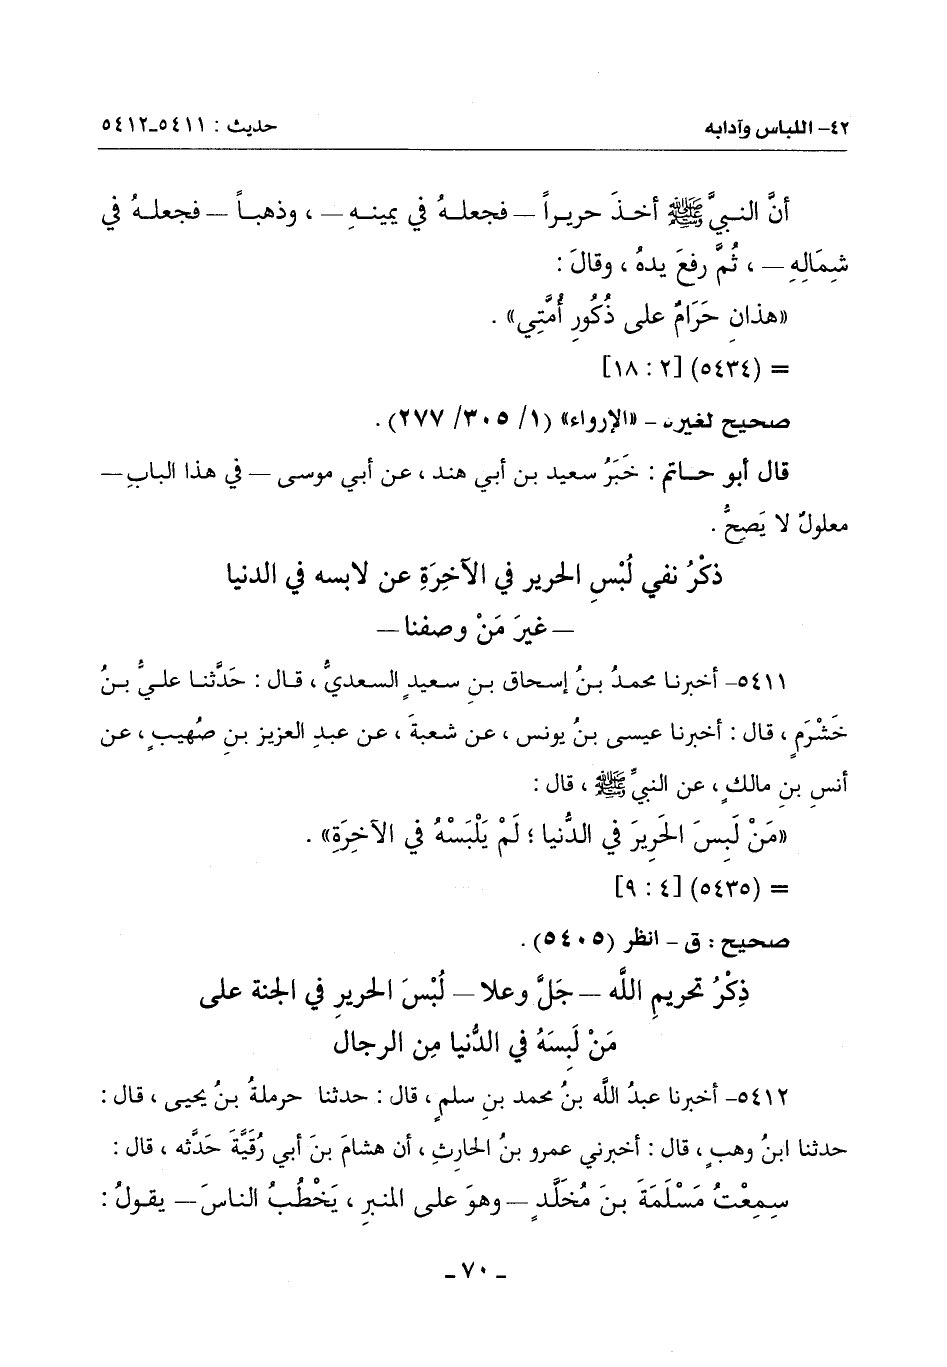 ٤٢- اللباس وآدابه حديث : ٥٤١١-٥٤١٢
أنَّ النـبيَّ ﷺ أخـذَ حريـراً – فجعلـهُ في يمينـهِ – ، وذهبـاً – فجعلـهُ في
شِمَالِهِ – ، ثُمَّ رفعَ يدهُ ، وقالَ :
«هذانِ حَرَامٌ على ذُكُورِ أُمَّتِي» .
= (٥٤٣٤) [٢ : ١٨]
صحيح لغيره - «الإرواء» (١/ ٣٠٥/ ٢٧٧) .
قال أبو حـاتم : خَبَرُ سعيد بن أبي هند ، عن أبي موسى – في هذا البابِ –
معلولٌ لا يَصحُّ .
ذكْرُ نفي لُبْسِ الحرير في الآخِرَةِ عن لابسه في الدنيا
– غيرَ مَنْ وصفنا –
٥٤١١- أخبرنـا محمـدُ بـنُ إسـحاق بـنِ سـعيدٍ السـعديُّ ، قـال : حَدَّثنـا علـيُّ بـنُ
خَشْرَمٍ ، قال : أخبرنا عيسى بنُ يونس ، عن شعبةَ ، عن عبدِ العزيز بنِ صُهيبٍ ، عن
أنسِ بنِ مالكٍ ، عن النبيِّ ﷺ ، قال :
«مَنْ لَبِسَ الحَرِيرَ في الدُّنيا ؛ لَمْ يَلْبَسْهُ في الآخِرَةِ» .
= (٥٤٣٥) [٤ : ٩]
صحيح : ق - انظر (٥٤٠٥) .
ذِكْرُ تحريمِ اللَّه – جَلَّ وعلا – لُبْسَ الحريرِ في الجنة على
مَنْ لَبِسَهُ في الدُّنيا مِن الرجال
٥٤١٢- أخبرنا عبدُ اللَّه بنُ محمد بنِ سلمٍ ، قال : حدثنا حرملةُ بنُ يحيى ، قال :
حدثنا ابنُ وهبٍ ، قال : أخبرني عمرو بنُ الحارثِ ، أن هشامَ بنَ أبي رُقَيَّةَ حَدَّثه ، قال :
سـمِعْتُ مَسْلَمَةَ بـنَ مُخَلَّدٍ – وهوَ علـى المنبرِ ، يَخْطُبُ النـاسَ – يقـولُ :
- ٧٠ -